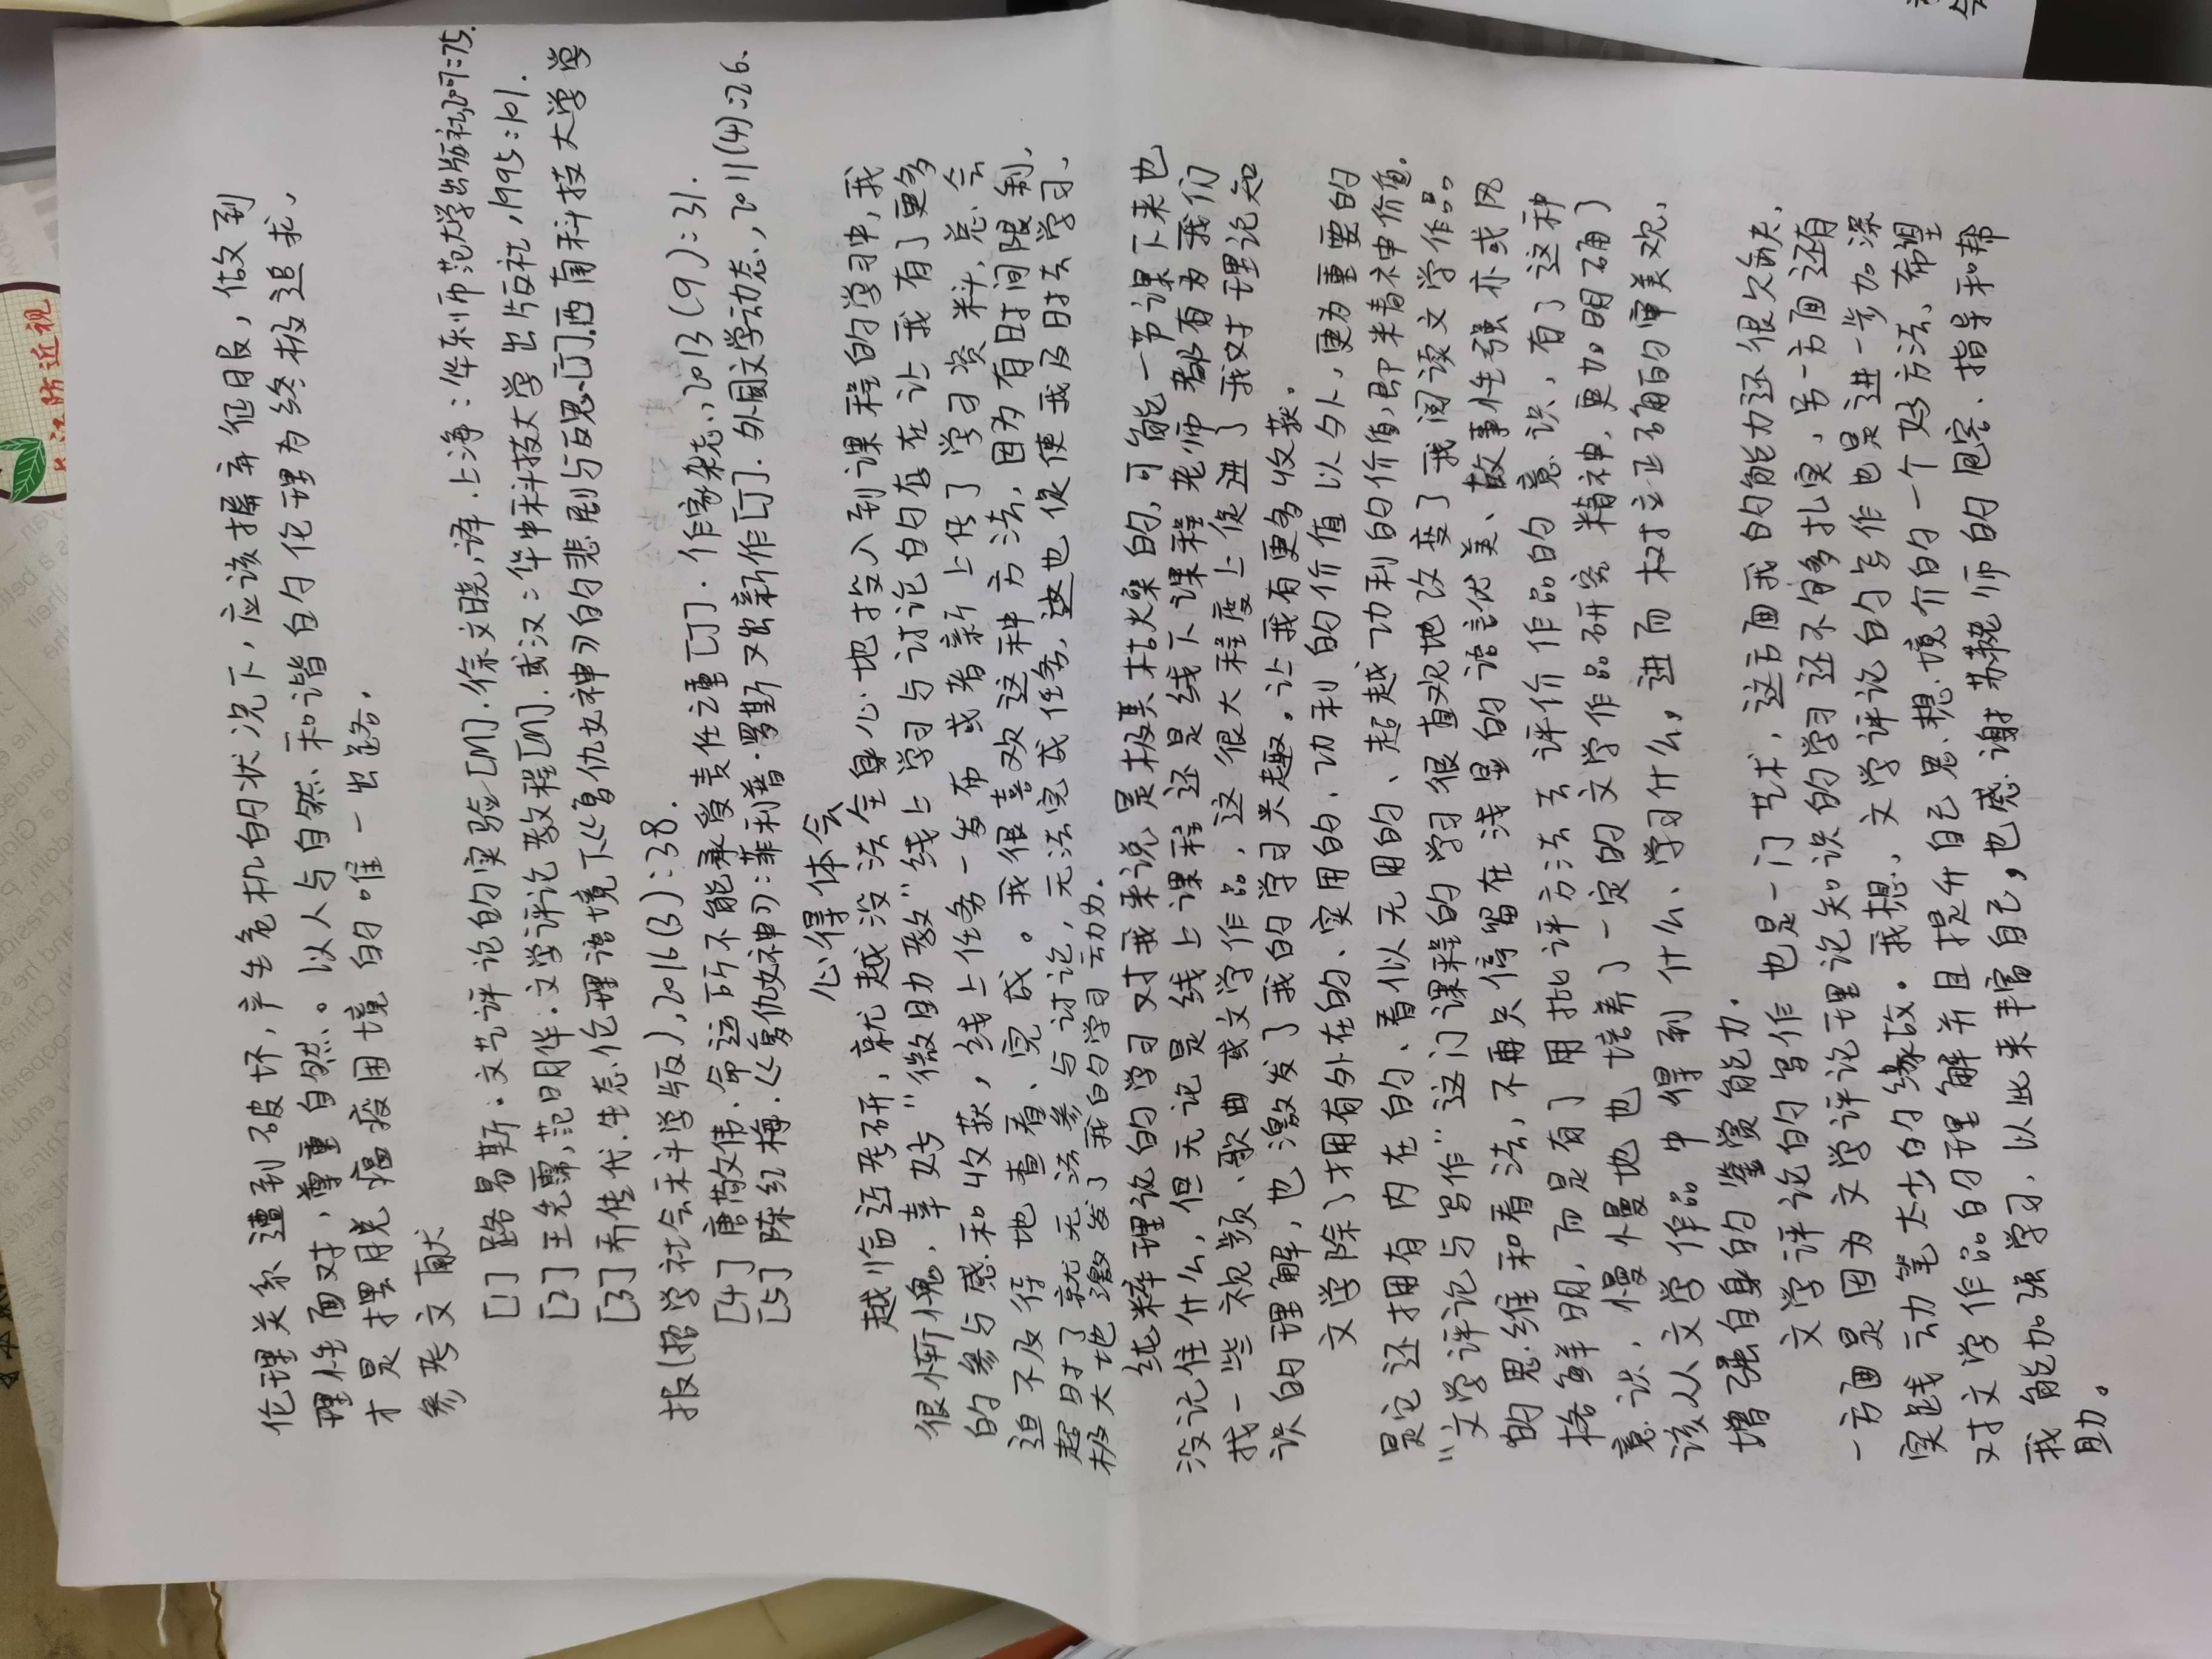 伦理关系遭到破坏，产生危机的状况下，应该摒弃征服，做到
理性面对，尊重自然。以人与自然、和谐的伦理为终极追求，
才是摆脱瘟疫困境的唯一出路。
参考文献
[1] 路易斯.文艺评论的实验[M].徐文晓,译.上海:华东师范大学出版社,2007:75.
[2] 王先霈,范明华.文学评论教程[M].武汉:华中科技大学出版社,1995:101.
[3] 乔传代.生态伦理语境下《复仇女神》的悲剧与反思[J].西南科技大学学
报(哲学社会科学版),2016(3):38.
[4] 唐敬伟.命运所不能承受责任之重[J].作家杂志,2013(9):31.
[5] 陈红梅.《复仇女神》:菲利普·罗斯又出新作[J].外国文学动态,2011(4):26.
心得体会
越临近考研，就越没法全身心地投入到课程的学习中，我
很惭愧，幸好“微助教”线上学习与讨论的存在让我有了更多
的参与感和收获，线上任务一发布或者新上传了学习资料，总会
迫不及待地查看、完成。我很喜欢这种方法，因为有时间限制，
超时了就无法参与讨论，无法完成任务，这也促使我及时去学习，
极大地激发了我的学习动力。
纯粹理论的学习对我来说是极其枯燥的，可能一节课下来也
没记住什么，但无论是线上课程还是线下课程老师都有为我们
找一些视频、歌曲或文学作品，这很大程度上促进了我对理论知
识的理解，也激发了我的学习兴趣。让我有更多收获。
文学除了拥有外在的、实用的、功利的价值以外，更为重要的
是它还拥有内在的、看似无用的、超越功利的价值，即精神价值。
“文学评论与写作”这门课程的学习很直观地改变了我阅读文学作品
的思维和看法，不再只停留在浅显的语言优美、故事性强亦或风
格鲜明，而是有了用批评方法去评价作品的意识，有了这种
意识，慢慢地也培养了一定的文学作品研究精神，更加明确了
该从文学作品中得到什么、学习什么，进而树立正确的审美观，
增强自身的鉴赏能力。
文学评论的写作也是一门艺术，这方面我的能力还很欠缺，
一方面是因为文学评论理论知识的学习还不够多扎实，另一方面还有
实践动笔太少的缘故。我想，文学评论的写作也是进一步加深
对文学作品的理解并且提升自己思想境界的一个好方法，希望
我能加强学习，以此来丰富自己，也感谢苏艳老师的包容、指导和帮
助。
防近视